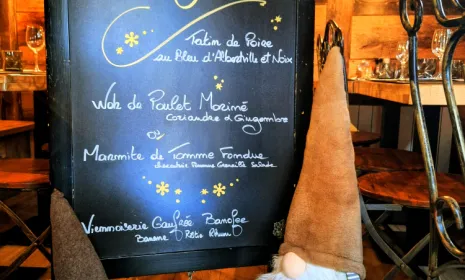 Tatin de Poire
au Bleu d'Albertville et Noix
Wok de Poulet Mariné
Coriandre & Gingembre
ou
Marmite de Tomme Fondue
Pomme Grenaille Salade
Viennoiserie Gaufrée Banofee
Banane Rôtie Rhum